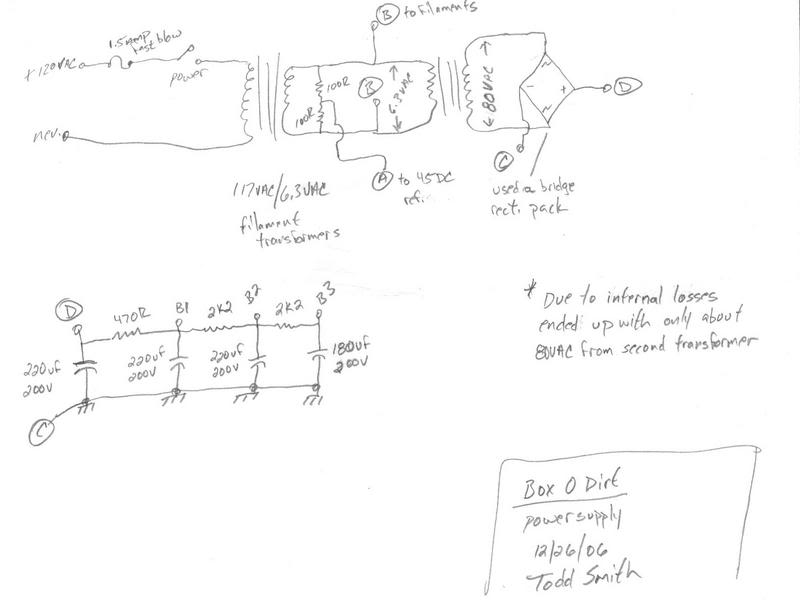 B to filaments
1.5 amp
fast blow
+120VAC
power
100R
100R
B
6.3VAC
80VAC
-
+
D
neu.
C
A to 45DC
ref.
117VAC/6.3VAC
filament
transformers
used a bridge
rect. pack
D
470R
B1
2K2
B2
2K2
B3
220uf
200V
220uf
200V
220uf
200V
180uf
200V
C
* Due to internal losses
ended up with only about
80VAC from second transformer
Box O Dirt
power supply
12/26/06
Todd Smith